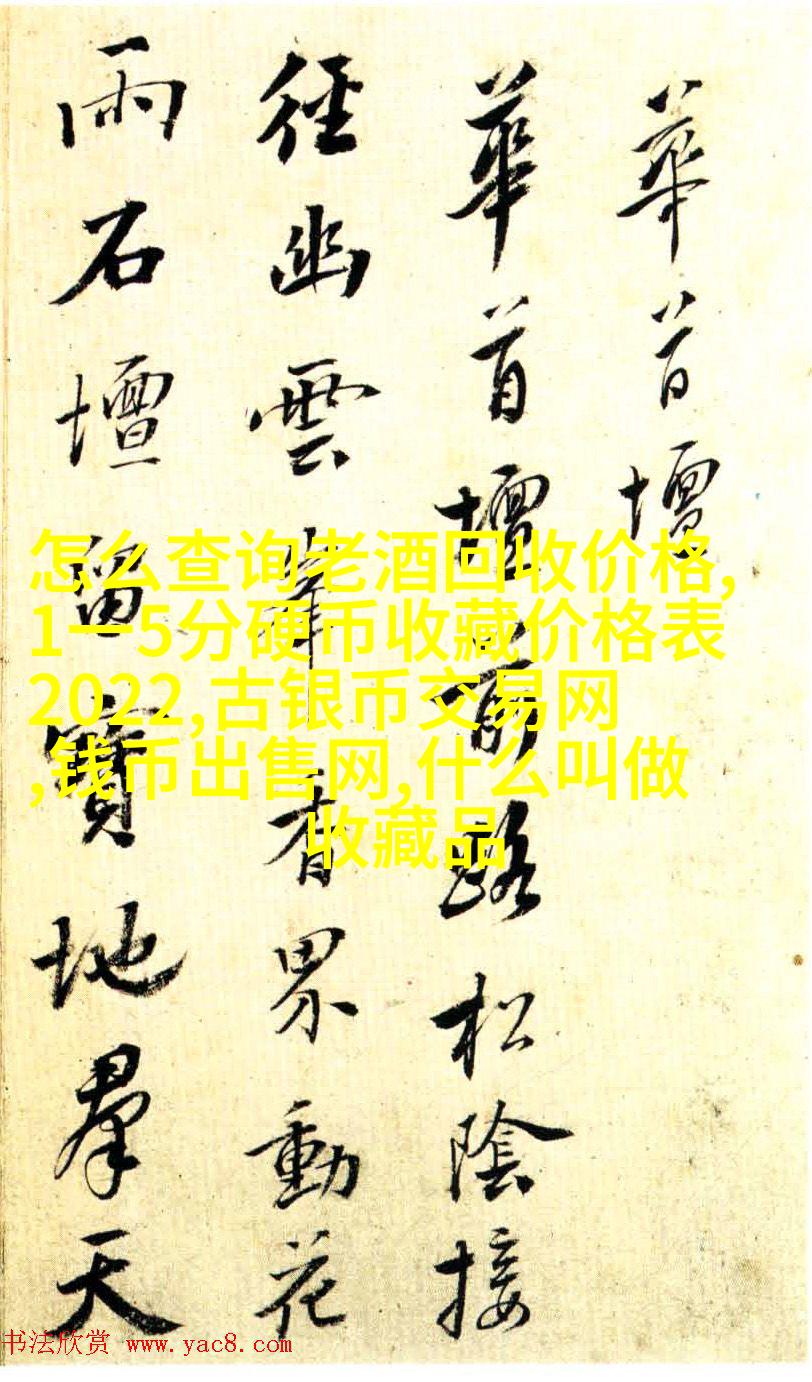 華首壇
華首壇前路松陰接
徑幽雲峯香界動花
雨石壇留寶地羣天
怎么查询老酒回收价格,
1一5分硬币收藏价格表
2022,古银币交易网
,钱币出售网,什么叫做
收藏品
书法欣赏 www.yac8.com